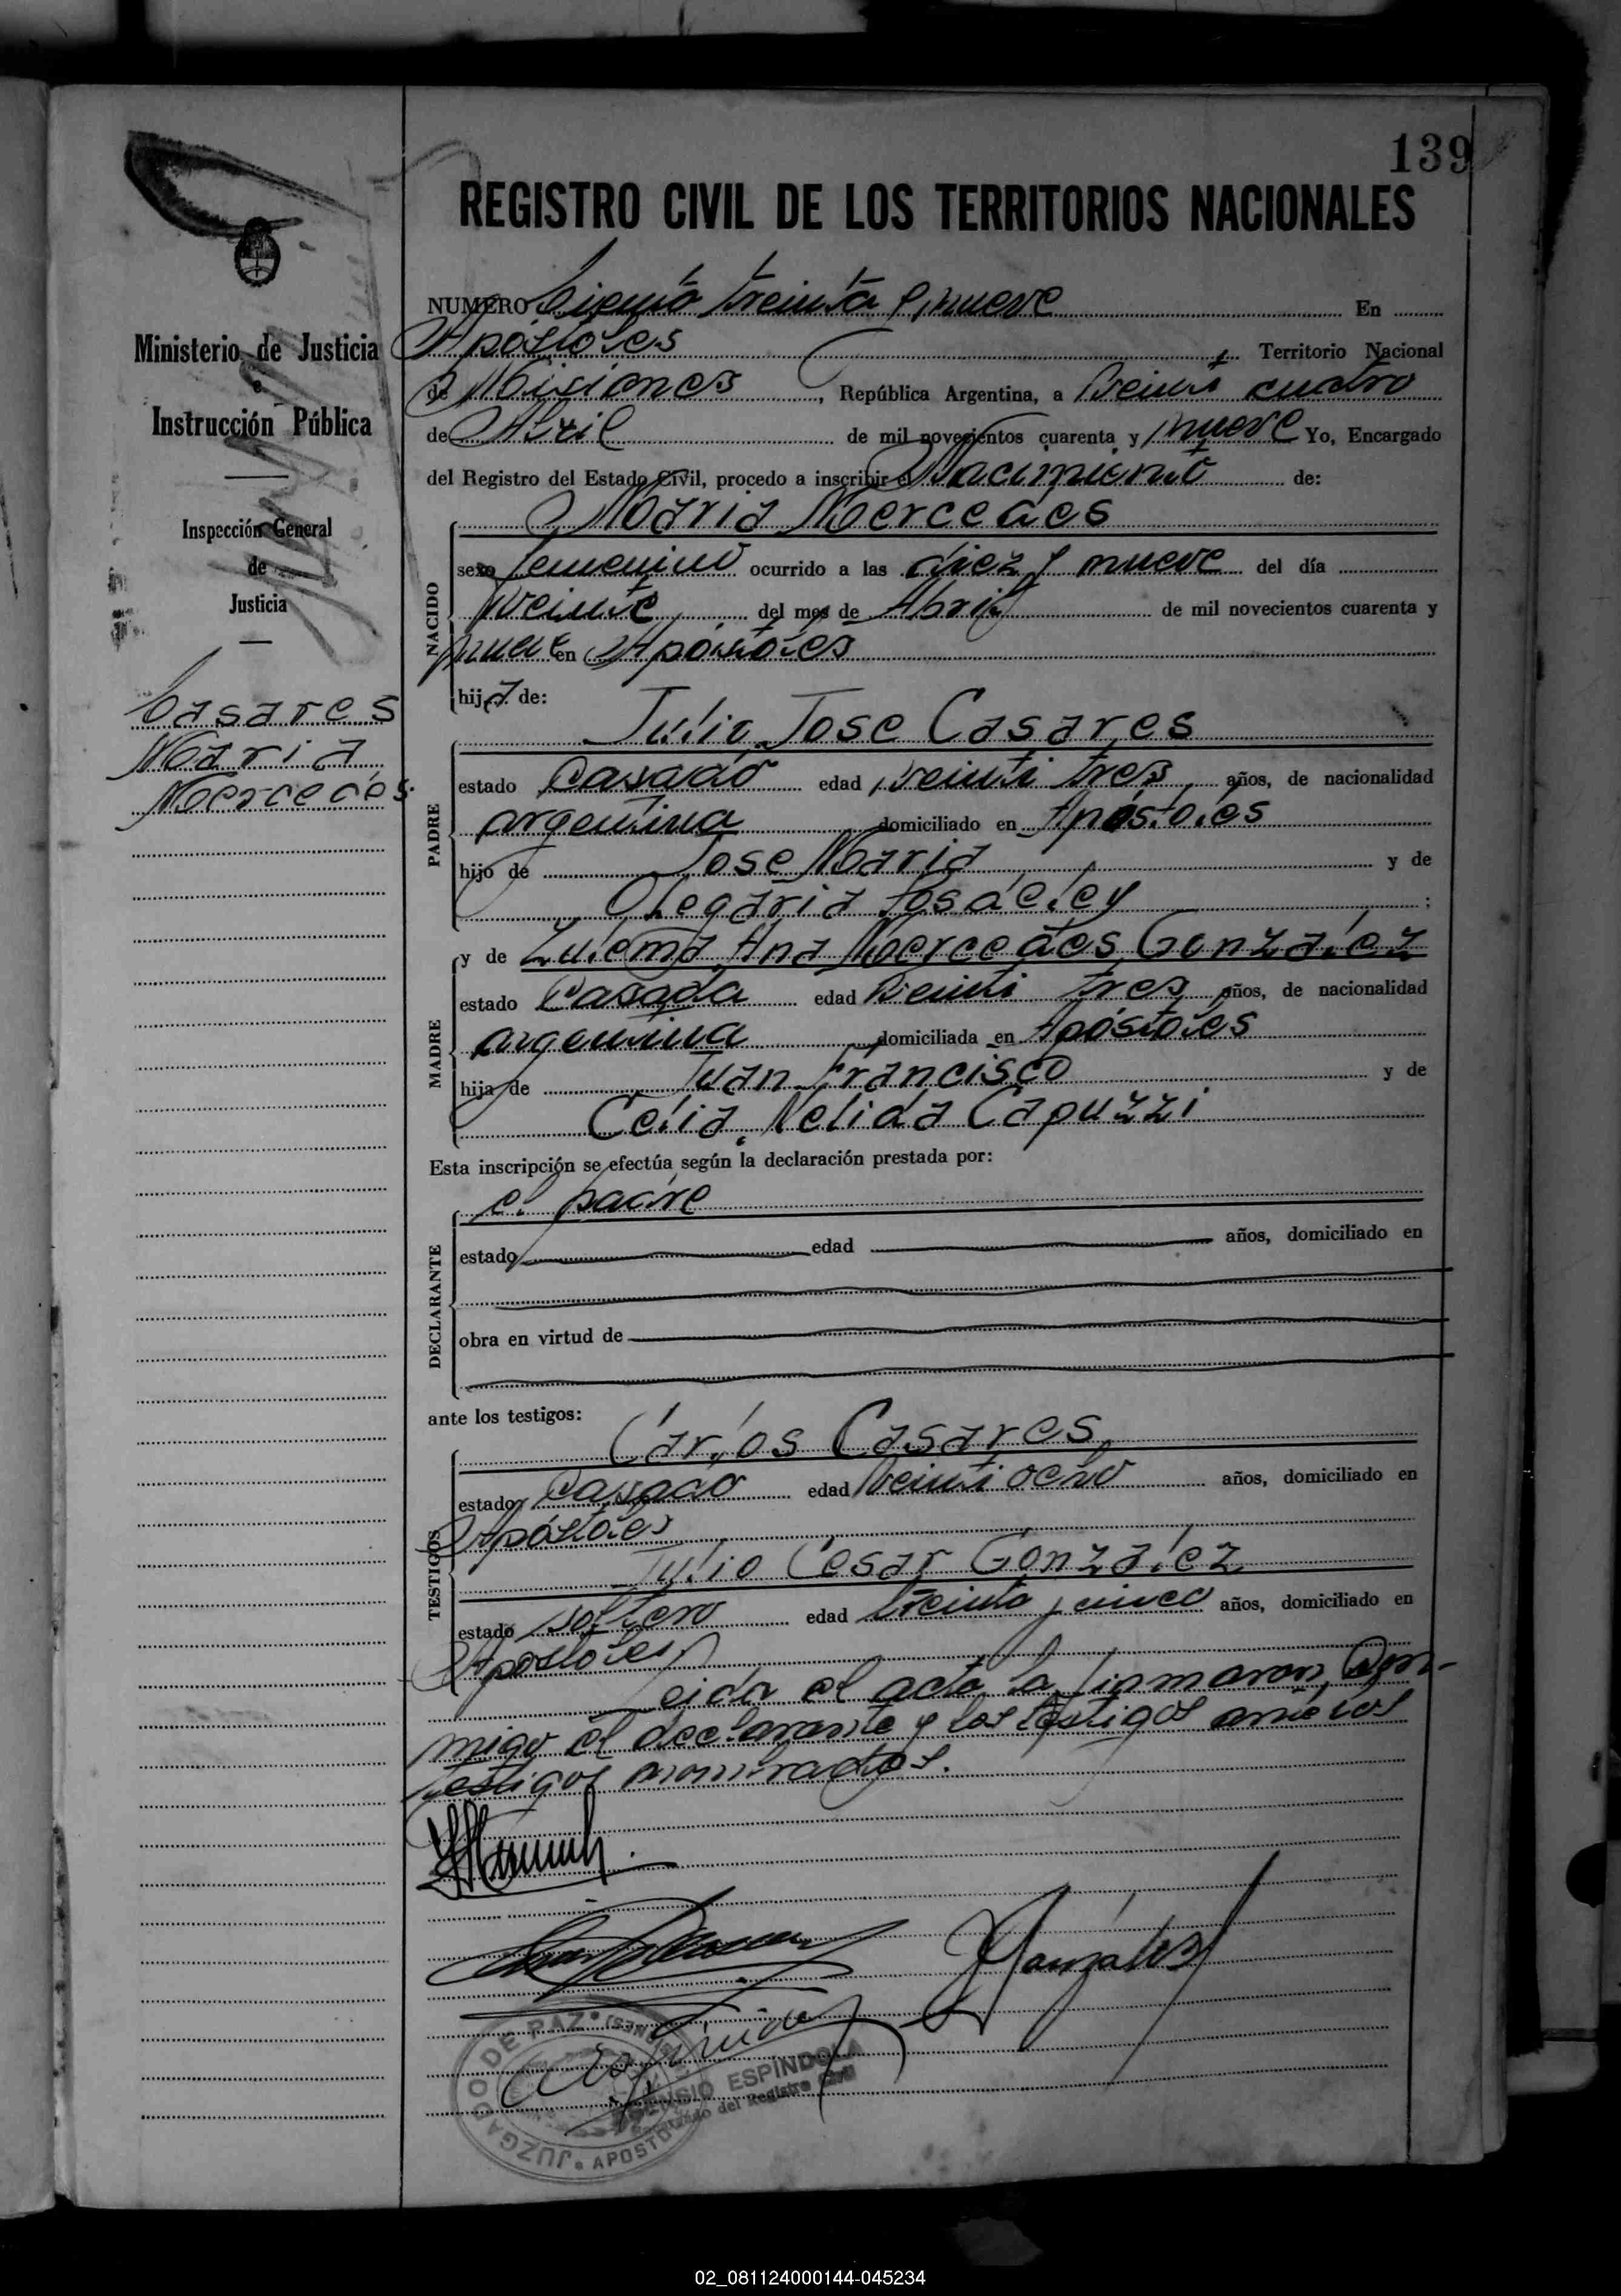 139
REGISTRO CIVIL DE LOS TERRITORIOS NACIONALES
Ministerio de Justicia
e
Instrucción Pública
Inspección General
de
Justicia
Casares
Maria
Mercedes
NUMERO Ciento treinta y nueve En
Apóstoles Territorio Nacional
de Misiones, República Argentina, a veinti cuatro
de Abril de mil novecientos cuarenta y nueve Yo, Encargado
del Registro del Estado Civil, procedo a inscribir el Nacimiento de:
NACIDO
Maria Mercedes
sexo femenino ocurrido a las diez y nueve del día
veinte del mes de Abril de mil novecientos cuarenta y
nueve en Apóstoles
hija de:
PADRE
Julio Jose Casares
estado Casado edad veinti tres años, de nacionalidad
argentina domiciliado en Apóstoles
hijo de Jose Maria y de
Olegaria ;
MADRE
y de Zulema Ana Mercedes González
estado Casada edad veinti tres años, de nacionalidad
argentina domiciliada en Apóstoles
hija de Juan Francisco y de
Celia Nelida Capuzzi
Esta inscripción se efectúa según la declaración prestada por:
DECLARANTE
el padre
estado edad años, domiciliado en
obra en virtud de
ante los testigos:
TESTIGOS
Carlos Casares
estado Casado edad veinti ocho años, domiciliado en
Apóstoles
Julio Cesar González
estado soltero edad treinta y cinco años, domiciliado en
Apostoles
Leida el acta la firmaron, con-
migo el declarante y los testigos
testigos nombrados.
González
JUZGADO DE PAZ APOSTOLES (MISIONES)
ESPÍNDOLA
Encargado del Registro Civil
02_081124000144-045234